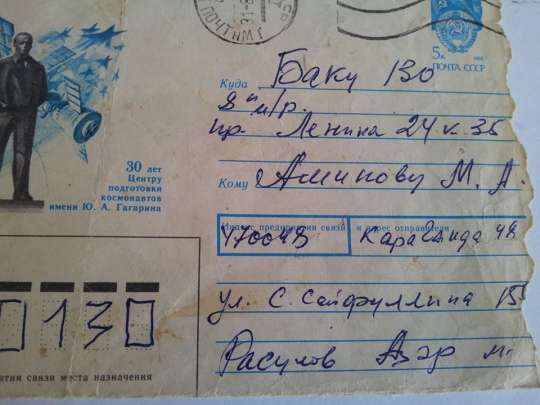 ПОЧТАМТ
5к
ПОЧТА СССР
Куда Баку 130
8й м/р.
пр. Ленина 24 к. 35
30 лет
Центру
подготовки
космонавтов
имени Ю. А. Гагарина
Кому Аминову М. А.
Индекс предприятия связи и адрес отправителя
470048 Караганда 48
ул. С. Сейфуллина
Расулов Азэр М.
0130
места назначения